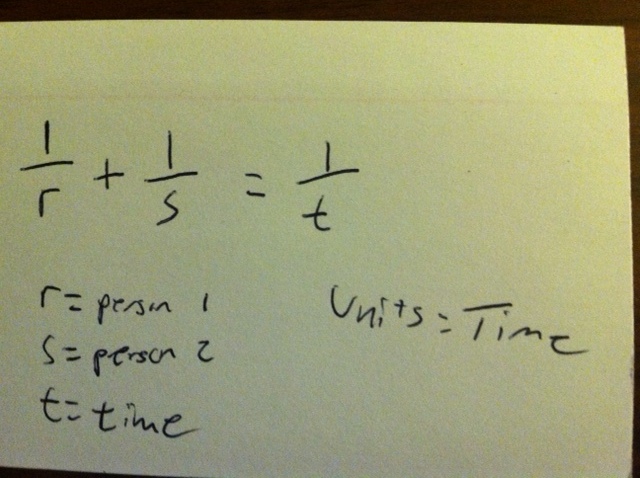 1/r + 1/s = 1/t
r = person 1
s = person 2
t = time
Units = Time